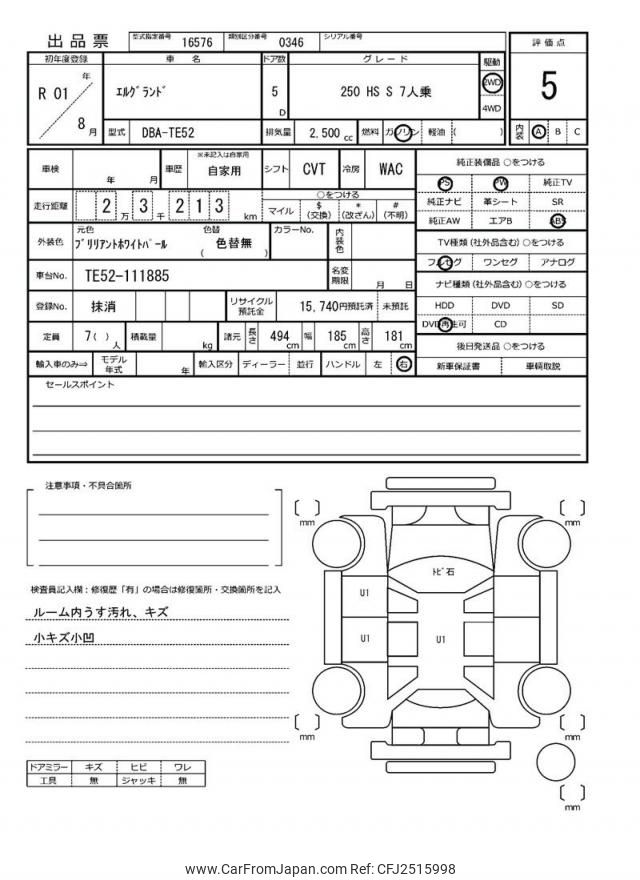 出品票
型式指定番号 16576 類別区分番号 0346 シリアル番号
評価点
5
内装 A B C
初年度登録 車名 ドア数 グレード 駆動
R 01 年 8 月
ｴﾙｸﾞﾗﾝﾄﾞ 5 D 250 HS S 7人乗 2WD 4WD
型式 DBA-TE52 排気量 2,500 cc 燃料 ガソリン 軽油 ( )
車検 年 月 車歴 ※未記入は自家用 自家用 シフト CVT 冷房 WAC
走行距離 2 万 3 千 2 1 3 km
○をつける
マイル $(交換) *(改ざん) #(不明)
外装色 元色 ﾌﾞﾘﾘｱﾝﾄﾎﾜｲﾄﾊﾟｰﾙ 色替 ( 色替無 ) カラーNo. 内装色
車台No. TE52-111885 名変期限 月 日
登録No. 抹消 リサイクル預託金 15,740円預託済 未預託
定員 7( ) 人 積載量 kg 諸元 長さ 494 cm 幅 185 cm 高さ 181 cm
輸入車のみ⇒ モデル年式 年 輸入区分 ディーラー 並行 ハンドル 左 右
純正装備品 ○をつける
PS PW 純正TV
純正ナビ 革シート SR
純正AW エアB ABS
TV種類(社外品含む)○をつける
フルセグ ワンセグ アナログ
ナビ種類(社外品含む)○をつける
HDD DVD SD
DVD再生可 CD
後日発送品 ○をつける
新車保証書 車輌取説
セールスポイント
注意事項・不具合箇所
検査員記入欄：修復歴「有」の場合は修復箇所・交換箇所を記入
ルーム内うす汚れ、キズ
小キズ小凹
ドアミラー キズ ヒビ ワレ
工具 無 ジャッキ 無
[ ] mm
[ ] mm
ﾄﾋﾞ石
U1
U1
U1
[ ] mm
[ ] mm
[ ] mm
www.CarFromJapan.com Ref: CFJ2515998